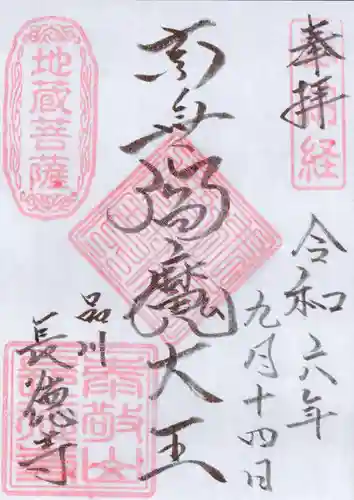 奉拝
令和六年
九月十四日
南無閻魔大王
地蔵菩薩
品川
長徳寺